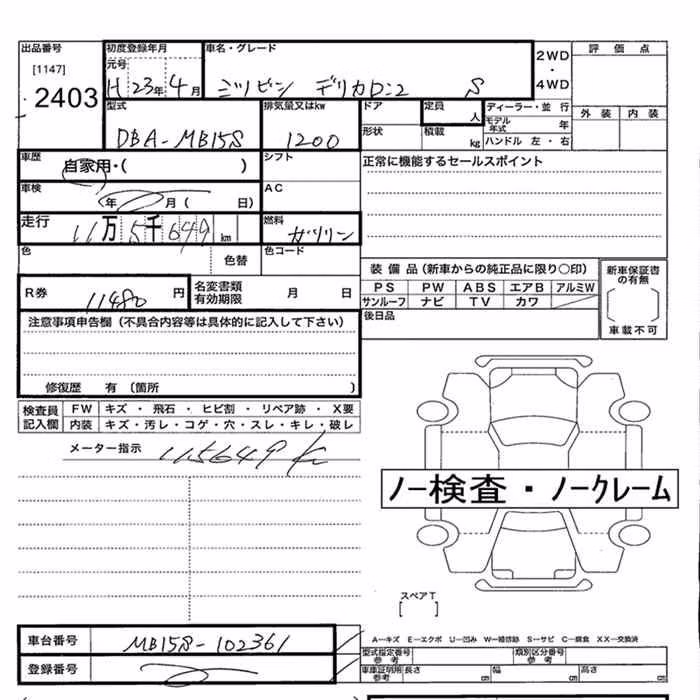 出品番号 初度登録年月 車名・グレード 2WD・4WD 評価点
[1147] 元号
2403 H 23年 4月 ミツビシ デリカD:2 S
型式 排気量又はkw ドア 定員 人 ディーラー・並行 外装 内装
DBA-MB15S 1200 形状 積載 kg モデル年式 年
ハンドル 左・右
車歴 自家用・( ) シフト 正常に機能するセールスポイント
車検 (年 月( 日) AC
走行 11万5千649km 燃料 ガソリン
色 色替 色コード
装備品(新車からの純正品に限り○印) 新車保証書の有無
R券 11480円 名変書類有効期限 月 日 PS PW ABS エアB アルミW
サンルーフ ナビ TV カワ 車載不可
注意事項申告欄(不具合内容等は具体的に記入して下さい) 後日品
修復歴 有 (箇所 )
検査員記入欄 FW キズ・飛石・ヒビ割・リペア跡・X要
内装 キズ・汚レ・コゲ・穴・スレ・キレ・破レ
メーター指示 115649 km
ノー検査・ノークレーム
スペアT
[ ]
車台番号 MB15S-102361 A−キズ E−エクボ U−凹み W−補修跡 S−サビ C−腐食 XX−交換済
型式指定番号 参考 類別区分番号 参考
登録番号 車庫証明所 参考 長さ 幅 高さ